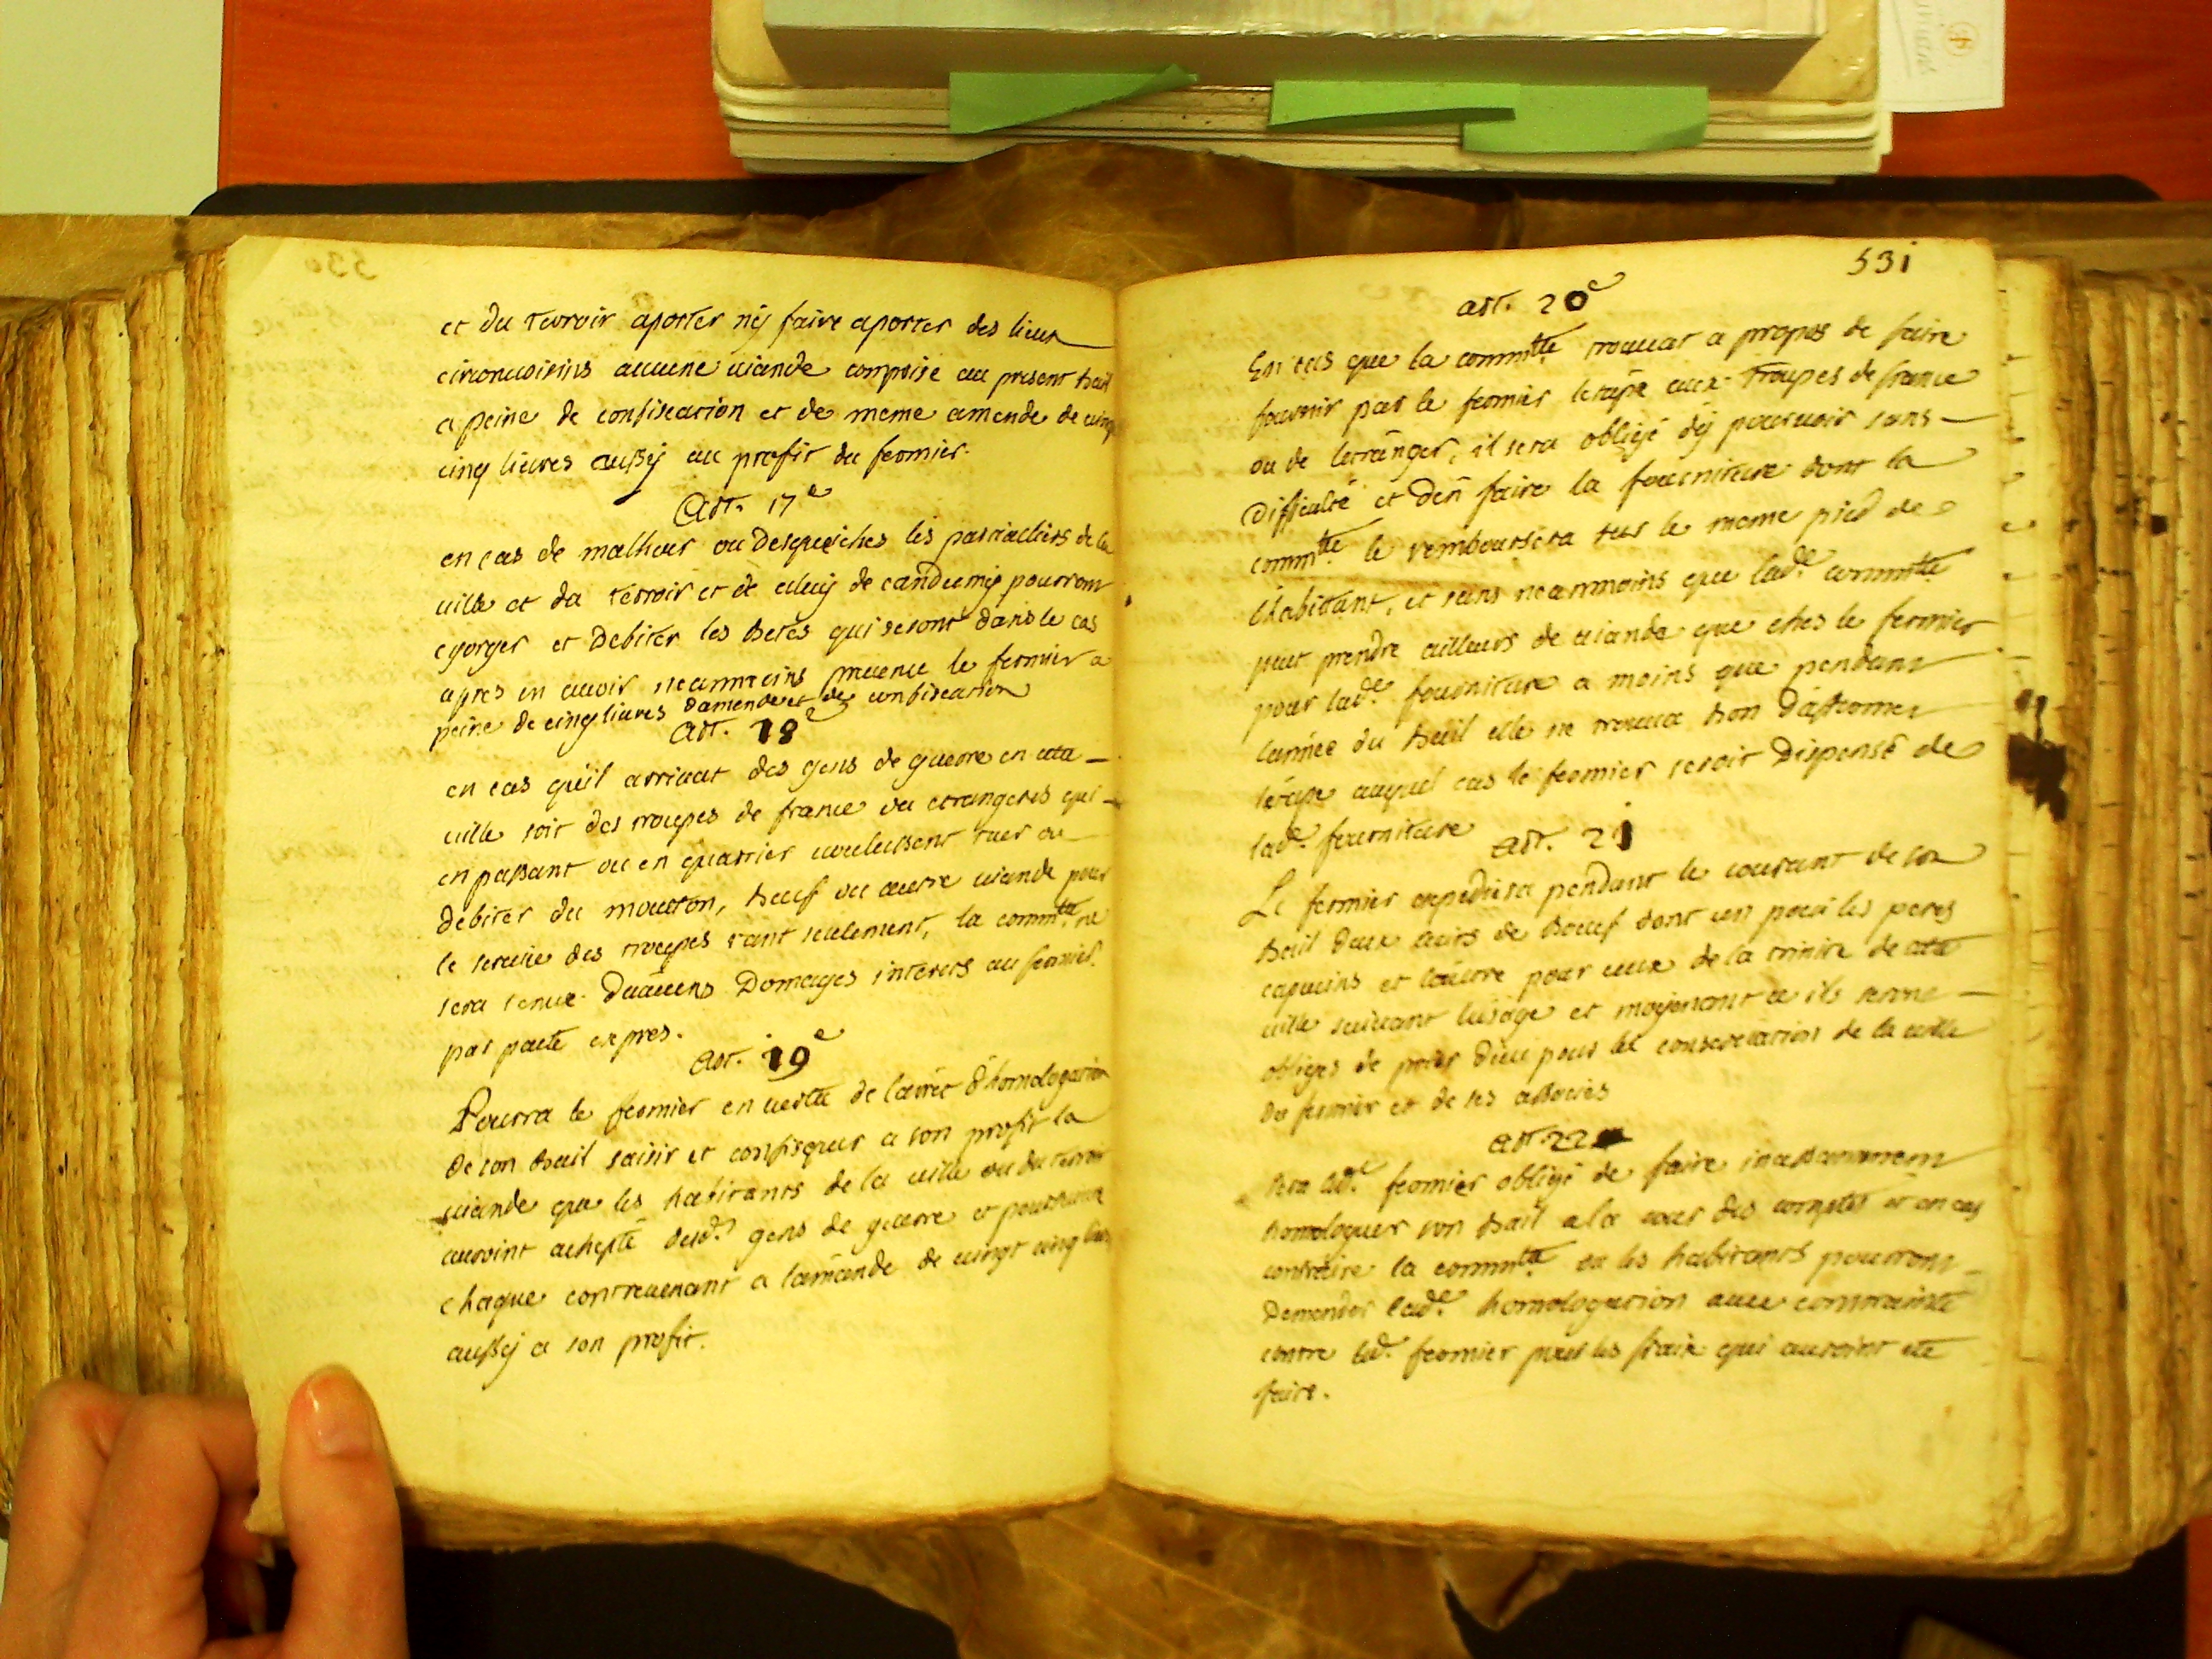 et du terroir aporter nÿ faire aporter des lieux
circonvoisins aucune viande comprise au present bail
a peine de confiscation et de meme amende de vingt
cinq livres aussy au profit du fermier.
Art. 17e
en cas de malheur ou desqueiches les particuliers de la
ville et du terroir et de celuy de candumy pourront
egorger et debiter les betes qui seront dans le cas
apres en avoir neanmoins prevenu le fermier a
peine de cinq livres damende et de confiscation
Art. 18e
en cas qu'il arrivat des gens de guerre en cette
ville soit des troupes de france ou etrangeres qui
en passant ou en quartier voulussent tuer ou
debiter du mouton, boeuf ou autre viande pour
le service des troupes tant seulement, la commtté ne
sera tenue d'aucuns domages interets au fermier.
par pacte expres.
Art. 19e
Pourra le fermier en vertu de l'arrêt d'homologation
de son bail saisir et confisquer a son profit la
viande que les habitants de la ville ou du terroir
auroint achepté desd.s gens de guerre et poursuivre
chaque contrevenant a lamande de vingt cinq livres
aussy a son profit.
531
art. 20e
En cas que la commtté trouvat a propos de faire
fournir par le fermier letape aux troupes de france
ou de letranger, il sera obligé dÿ pourvoir sans
difficulté et d'en faire la fourniture dont la
commtté le remboursera sur le meme pied de
l'habittant, et sans neanmoins que lad.e commtté
peut prendre ailleurs de viande que ches le fermier
pour lad.e fourniture a moins que pendant
lannée du bail elle ne trouva bon d'afermer
létape auquel cas le fermier seroit dispensé de
lad.e fourniture
art. 21
Le fermier expediera pendant le courant de son
bail deux cuirs de boeuf dont un pour les peres
capucins et l'autre pour ceux de la trinité de cette
ville suivant lusage et moyenant ce ils seront
obliges de prier dieu pour la conservation de la ville
du fermier et de ses associés
art. 22
sera led.t fermier obligé de faire incessamment
homologuer son bail a la cour des comptes et en cas
contraire la commtté ou les habitants pourront
demander lad.e homologation avec contrainte
contre led. fermier pour les fraix qui auroint eté
faits.